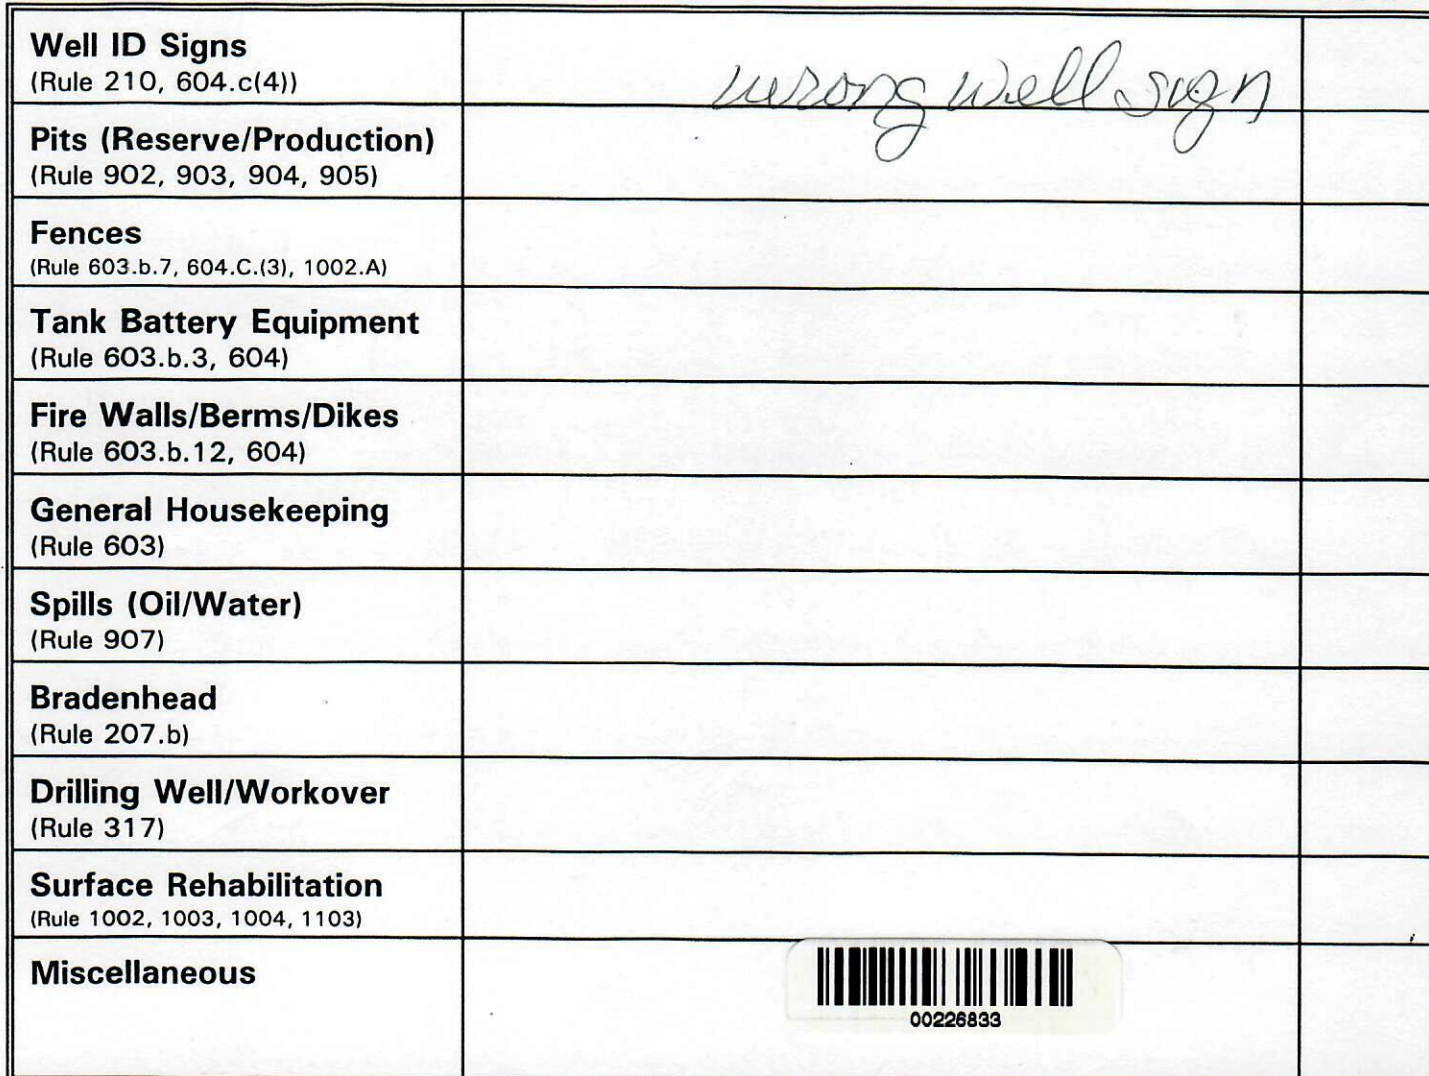 Well ID Signs
(Rule 210, 604.c(4))
wrong well sign
Pits (Reserve/Production)
(Rule 902, 903, 904, 905)
Fences
(Rule 603.b.7, 604.C.(3), 1002.A)
Tank Battery Equipment
(Rule 603.b.3, 604)
Fire Walls/Berms/Dikes
(Rule 603.b.12, 604)
General Housekeeping
(Rule 603)
Spills (Oil/Water)
(Rule 907)
Bradenhead
(Rule 207.b)
Drilling Well/Workover
(Rule 317)
Surface Rehabilitation
(Rule 1002, 1003, 1004, 1103)
Miscellaneous
00226833